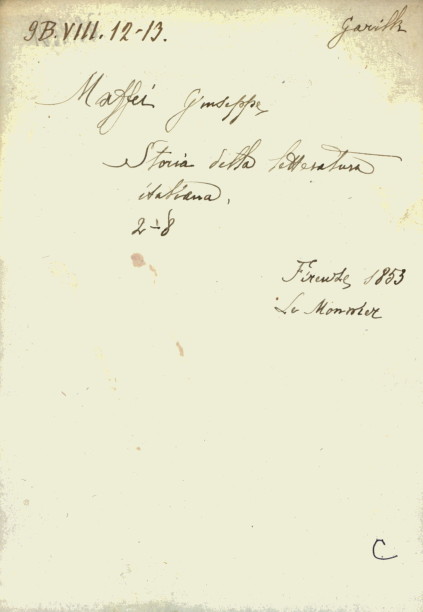 9B.VIII. 12-13.
Maffei Giuseppe,
Storia della letteratura
italiana.
2-8
Firenze, 1853
Le Monnier
C.